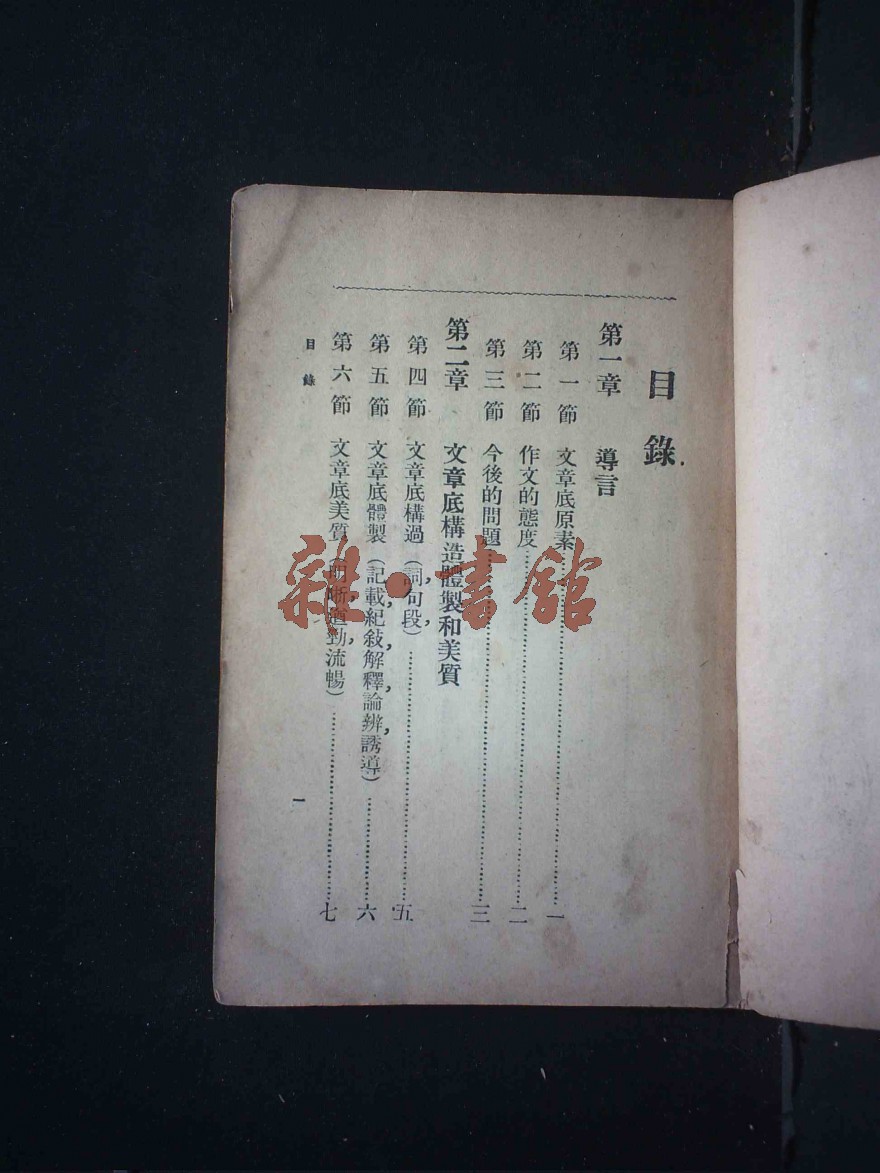 目錄
第一章 導言
第一節 文章底原素……一
第二節 作文的態度……二
第三節 今後的問題……三
第二章 文章底構造體製和美質
第四節 文章底構過（詞，句，段）……五
第五節 文章底體製（記載，紀敍，解釋，論辨，誘導）……六
第六節 文章底美質（明晰，遒勁，流暢）……七
目錄
一
雜·書館